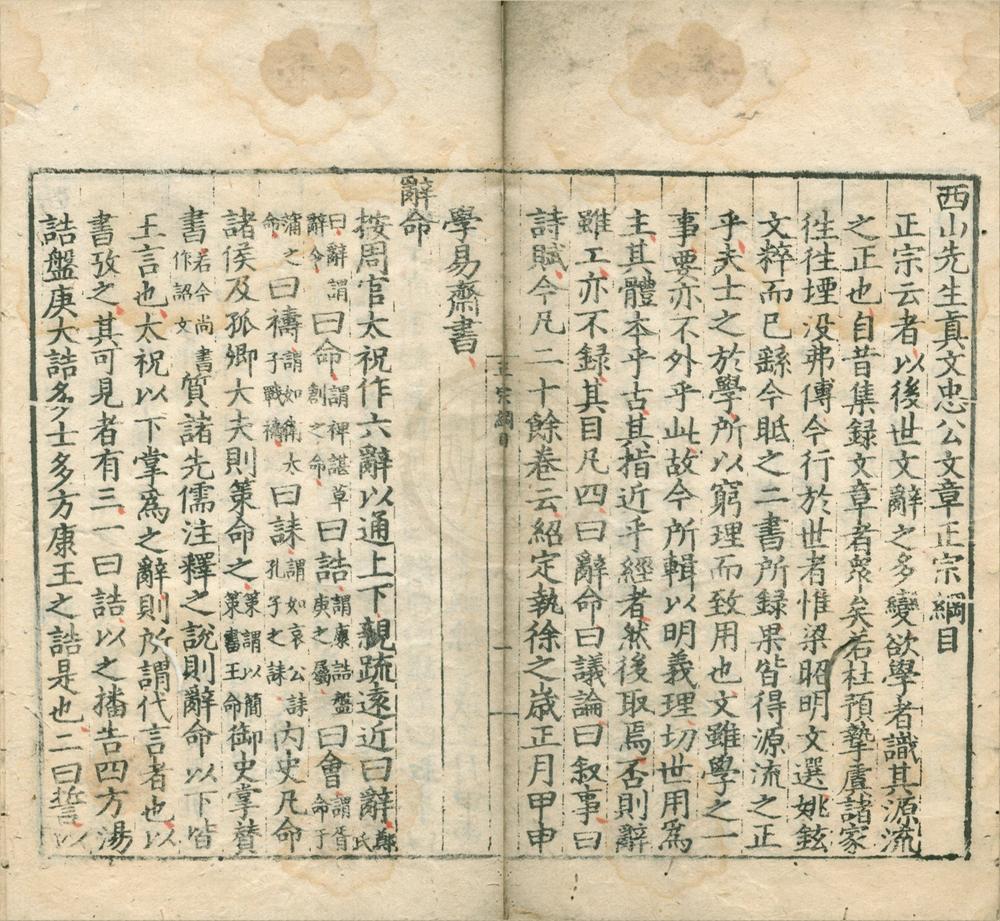 西山先生眞文忠公文章正宗綱目
正宗云者以後世文辭之多變欲學者識其源流
之正也自昔集録文章者衆矣若杜預摯虞諸家
徃徃堙没弗傳今行於世者惟梁昭明文選姚鉉
文粹而已繇今眡之二書所録果皆得源流之正
乎夫士之於學所以窮理而致用也文雖學之一
事要亦不外乎此故今所輯以明義理切世用爲
主其體本乎古其指近乎經者然後取焉否則辭
雖工亦不録其目凡四曰辭命曰議論曰叙事曰
詩賦今凡二十餘卷云紹定執徐之歳正月甲申
正宗綱目 一
學易齋書
辭命
按周官太祝作六辭以通上下親疏遠近曰辭鄭氏
曰辭謂辭令曰命謂裨諶草創之命曰誥謂康誥盤庚之屬曰會謂胥命于
蒲之命曰禱謂如衛太子戰禱曰誄謂如哀公誄孔子之誄内史凡命
諸侯及孤卿大夫則策命之策謂以簡策書王命御史掌賛
書若今尚書作詔文質諸先儒注釋之說則辭命以下皆
王言也太祝以下掌爲之辭則所謂代言者也以
書攷之其可見者有三一曰誥以之播告四方湯
誥盤庚大誥多士多方康王之誥是也二曰誓以